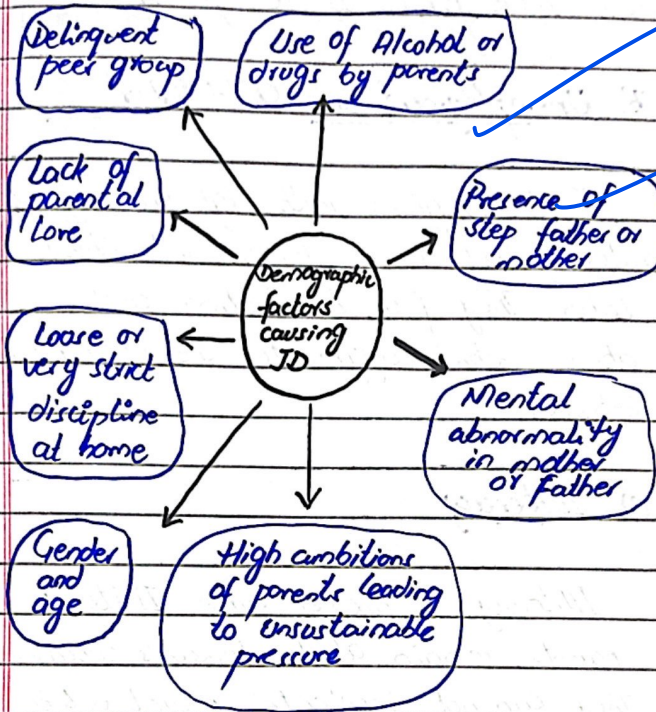 Delinquent
peer group
Use of Alcohol or
drugs by parents
Lack of
parental
Love
Presence of
step father or
mother
Demographic
factors
causing
JD
Loose or
very strict
discipline
at home
Mental
abnormality
in mother
or Father
Gender
and
age
High ambitions
of parents leading
to unsustainable
pressure